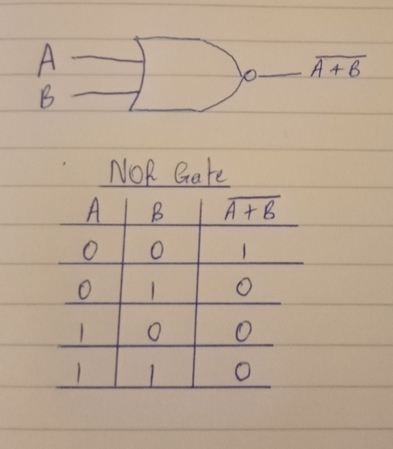 A
B
A̅ ̅+̅ ̅B̅
NOR Gate
A B A̅ ̅+̅ ̅B̅
0 0 1
0 1 0
1 0 0
1 1 0